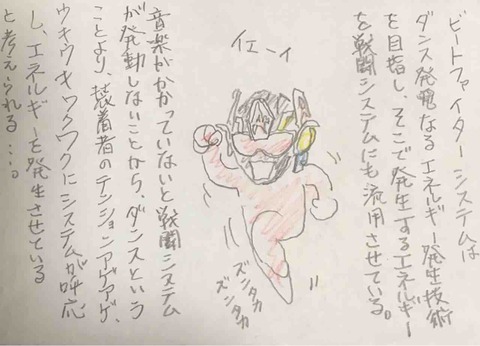 ビートファイターシステムは
ダンス発電なるエネルギー発生技術
を目指し、そこで発生するエネルギー
を戦闘システムにも流用させている。
イエーイ
ズンタカ
ズンタカ
音楽がかかっていないと戦闘システム
が発動しないことから、ダンスという
ことより、装着者のテンションアゲアゲ、
ウキウキワクワクにシステムが呼応
し、エネルギーを発生させている
と考えられる…。